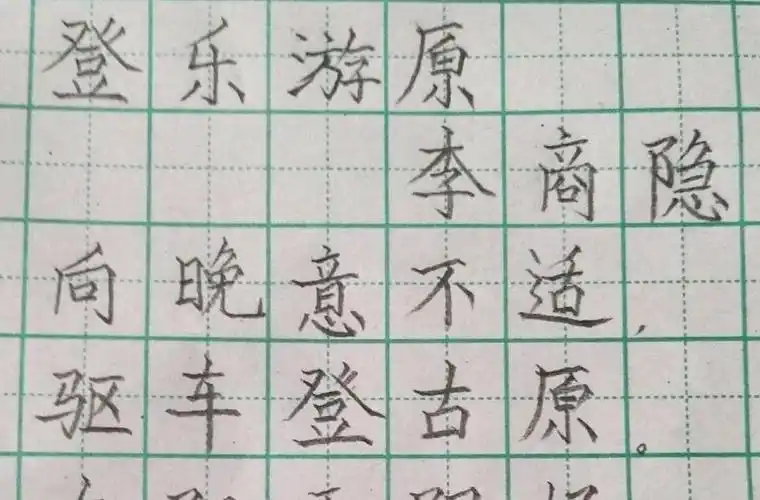 登乐游原
李商隐
向晚意不适,
驱车登古原。